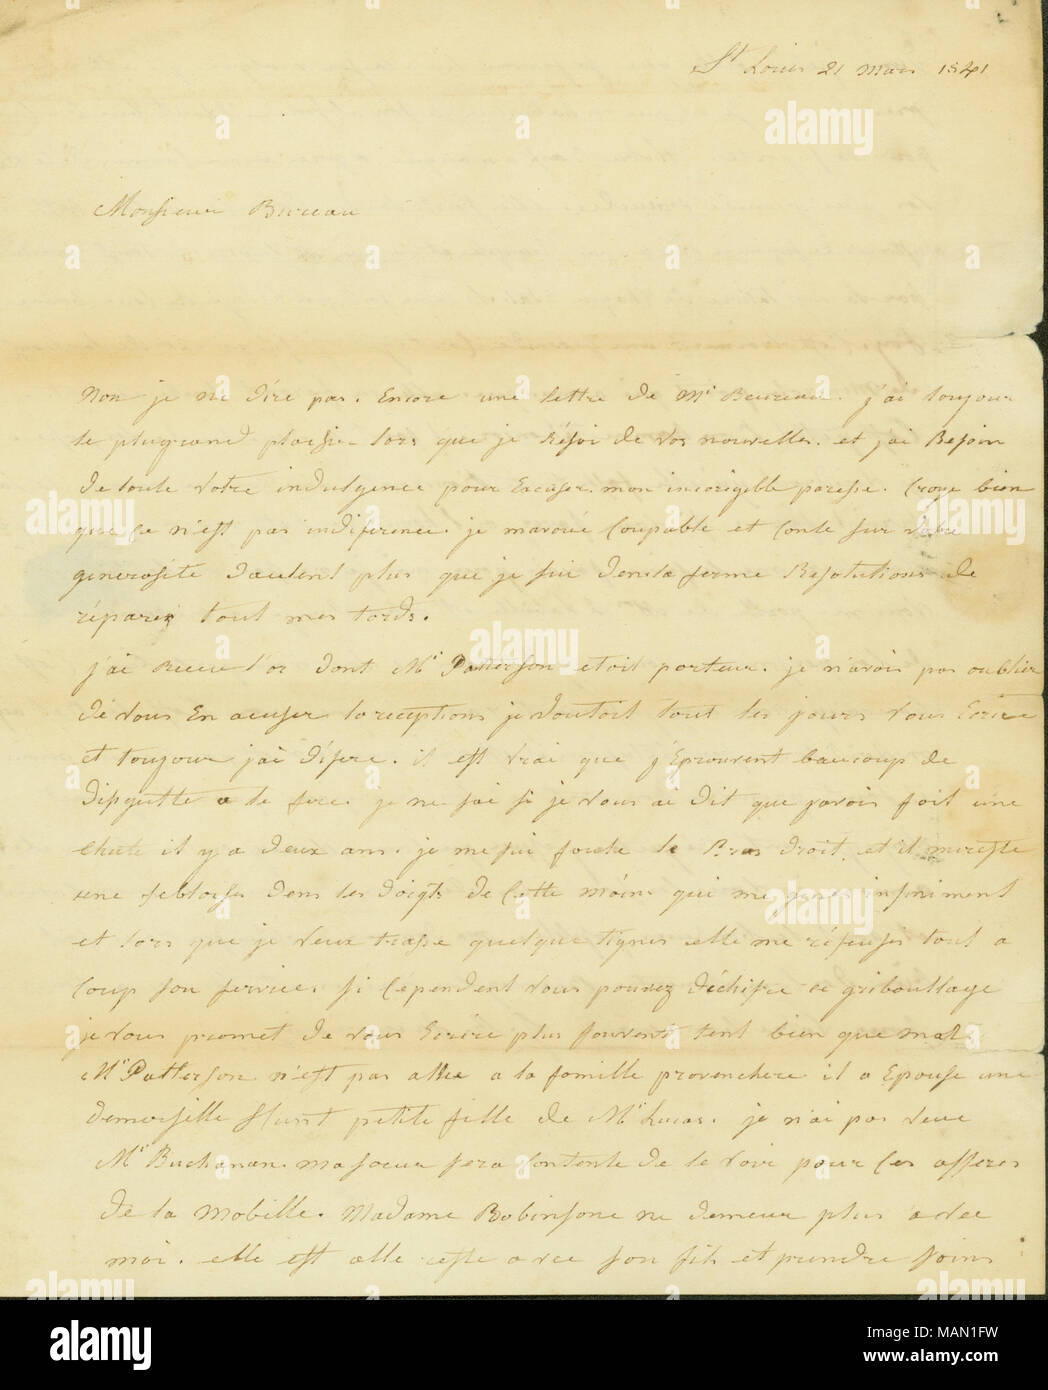 St Louis 21 mars 1841
Monsieur Bureau
Non je ne dire pas. Encore une lettre de Mr Beureau. j'ai toujour
le plugrand plaisir lors que je résoi de vos nouvelles. et j'ai Besoin
de toute votre indulgence pour Excuser mon incorigible paresse. Croye bien
que ce n'est pas indiference. je mavoue Coupable et Conte sur votre
generosite dautent plus que je sui dens la ferme Resolutions de
réparez tout mes tords.
j'ai Reccu l'or dont Mr Patterson etoit porteur. je n'avois pas oublier
de vous En acuser la receptions je voutoit tout les jours vous Ecrire
et toujour j'ai difere. il est vrai que j'Eprouvent baucoup de
disgutte a le fere. je ne sai si je vous ai dit que javois fait une
chute il y a deux ans. je me sui foule le Bras droit, et il mereste
une feblaise dens les doigts de cette mains qui me infiniment
et lors que je veux trasse quelque lignes elle me réfuser tout a
Coup son service. si cépendent vous pouvez déchifre ce griboullage
je vous promet de vous Ecrire plus souvent tent bien que mal.
Mr Patterson n'est pas allie a la famille provenchere il a Epouse une
demoiselle Hunt petite fille de Mr Lucas. je n'ai pas veue
Mr Buchanan. masoeur sera contente de le voir pour les afferes
de la Mobille. Madame Robinsone ne demeur plus avec
moi. elle est alle avec son fils et prendre soins
alamy
Image ID: MAN1FW
www.alamy.com